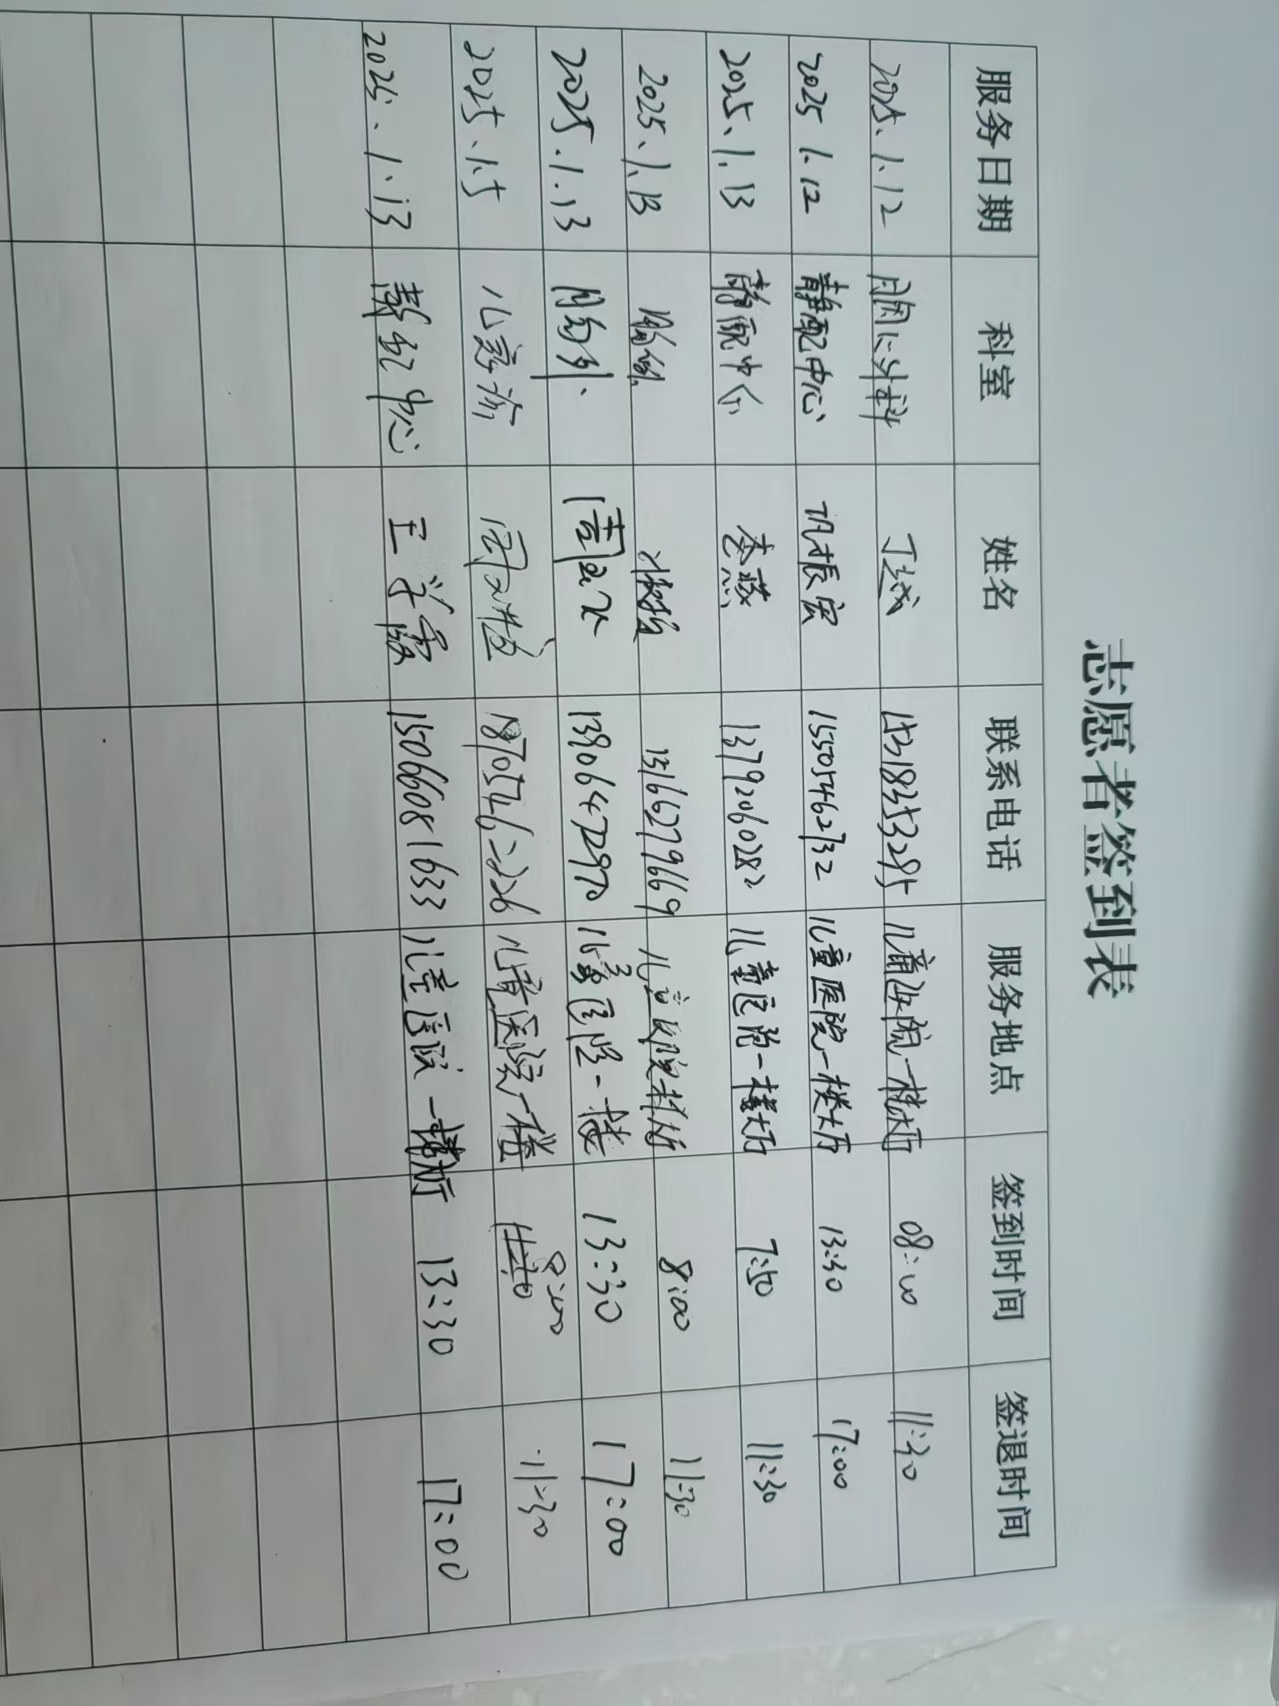 志愿者签到表
服务日期 科室 姓名 联系电话 服务地点 签到时间 签退时间
2025.1.12 胸心外科 丁 15318353295 儿童医院一楼大厅 08:00 11:30
2025 1.12 静配中心 巩振宏 15505462732 儿童医院一楼大厅 13:30 17:00
2025.1.13 静配中心 李燕 13792060282 儿童医院一楼大厅 7:50 11:30
2025.1.13 胸外 13166279669 儿童医院 8:00 11:30
2025.1.13 胸外 13906472970 儿童医院一楼 13:30 17:00
2025.1.5 儿急诊 儿童医院 8:00 11:30
2025.1.13 静配中心 王 15066081633 儿童医院一楼大厅 13:30 17:00